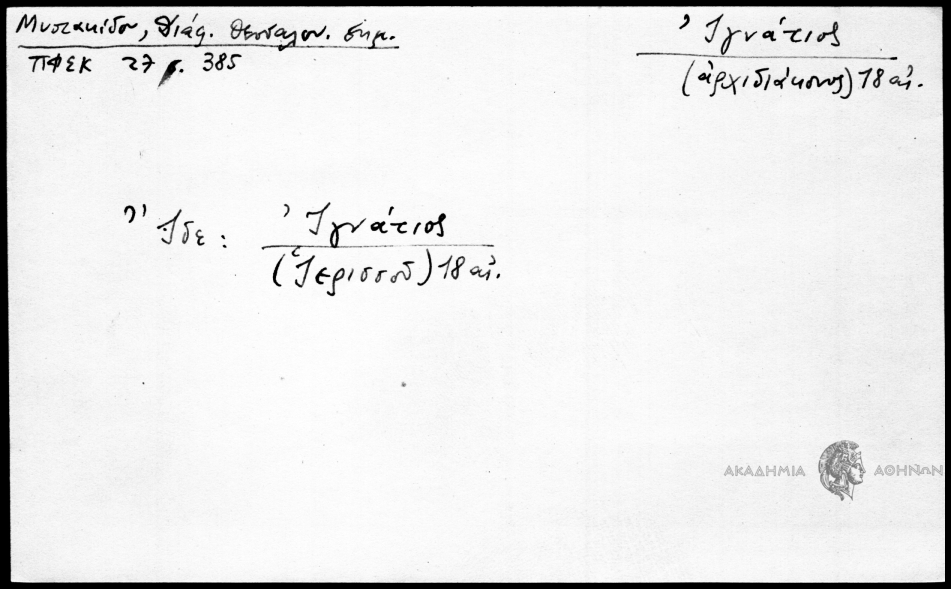 Μυστακίδου, Διάφ. Θεσσαλον. σημ.
ΠΦΣΚ 27 σ. 385
Ἰγνάτιος
(ἀρχιδιάκονος) 18 αἰ.
Ἴδε: Ἰγνάτιος
(Ἱερισσοῦ) 18 αἰ.
ΑΚΑΔΗΜΙΑ ΑΘΗΝΩΝ